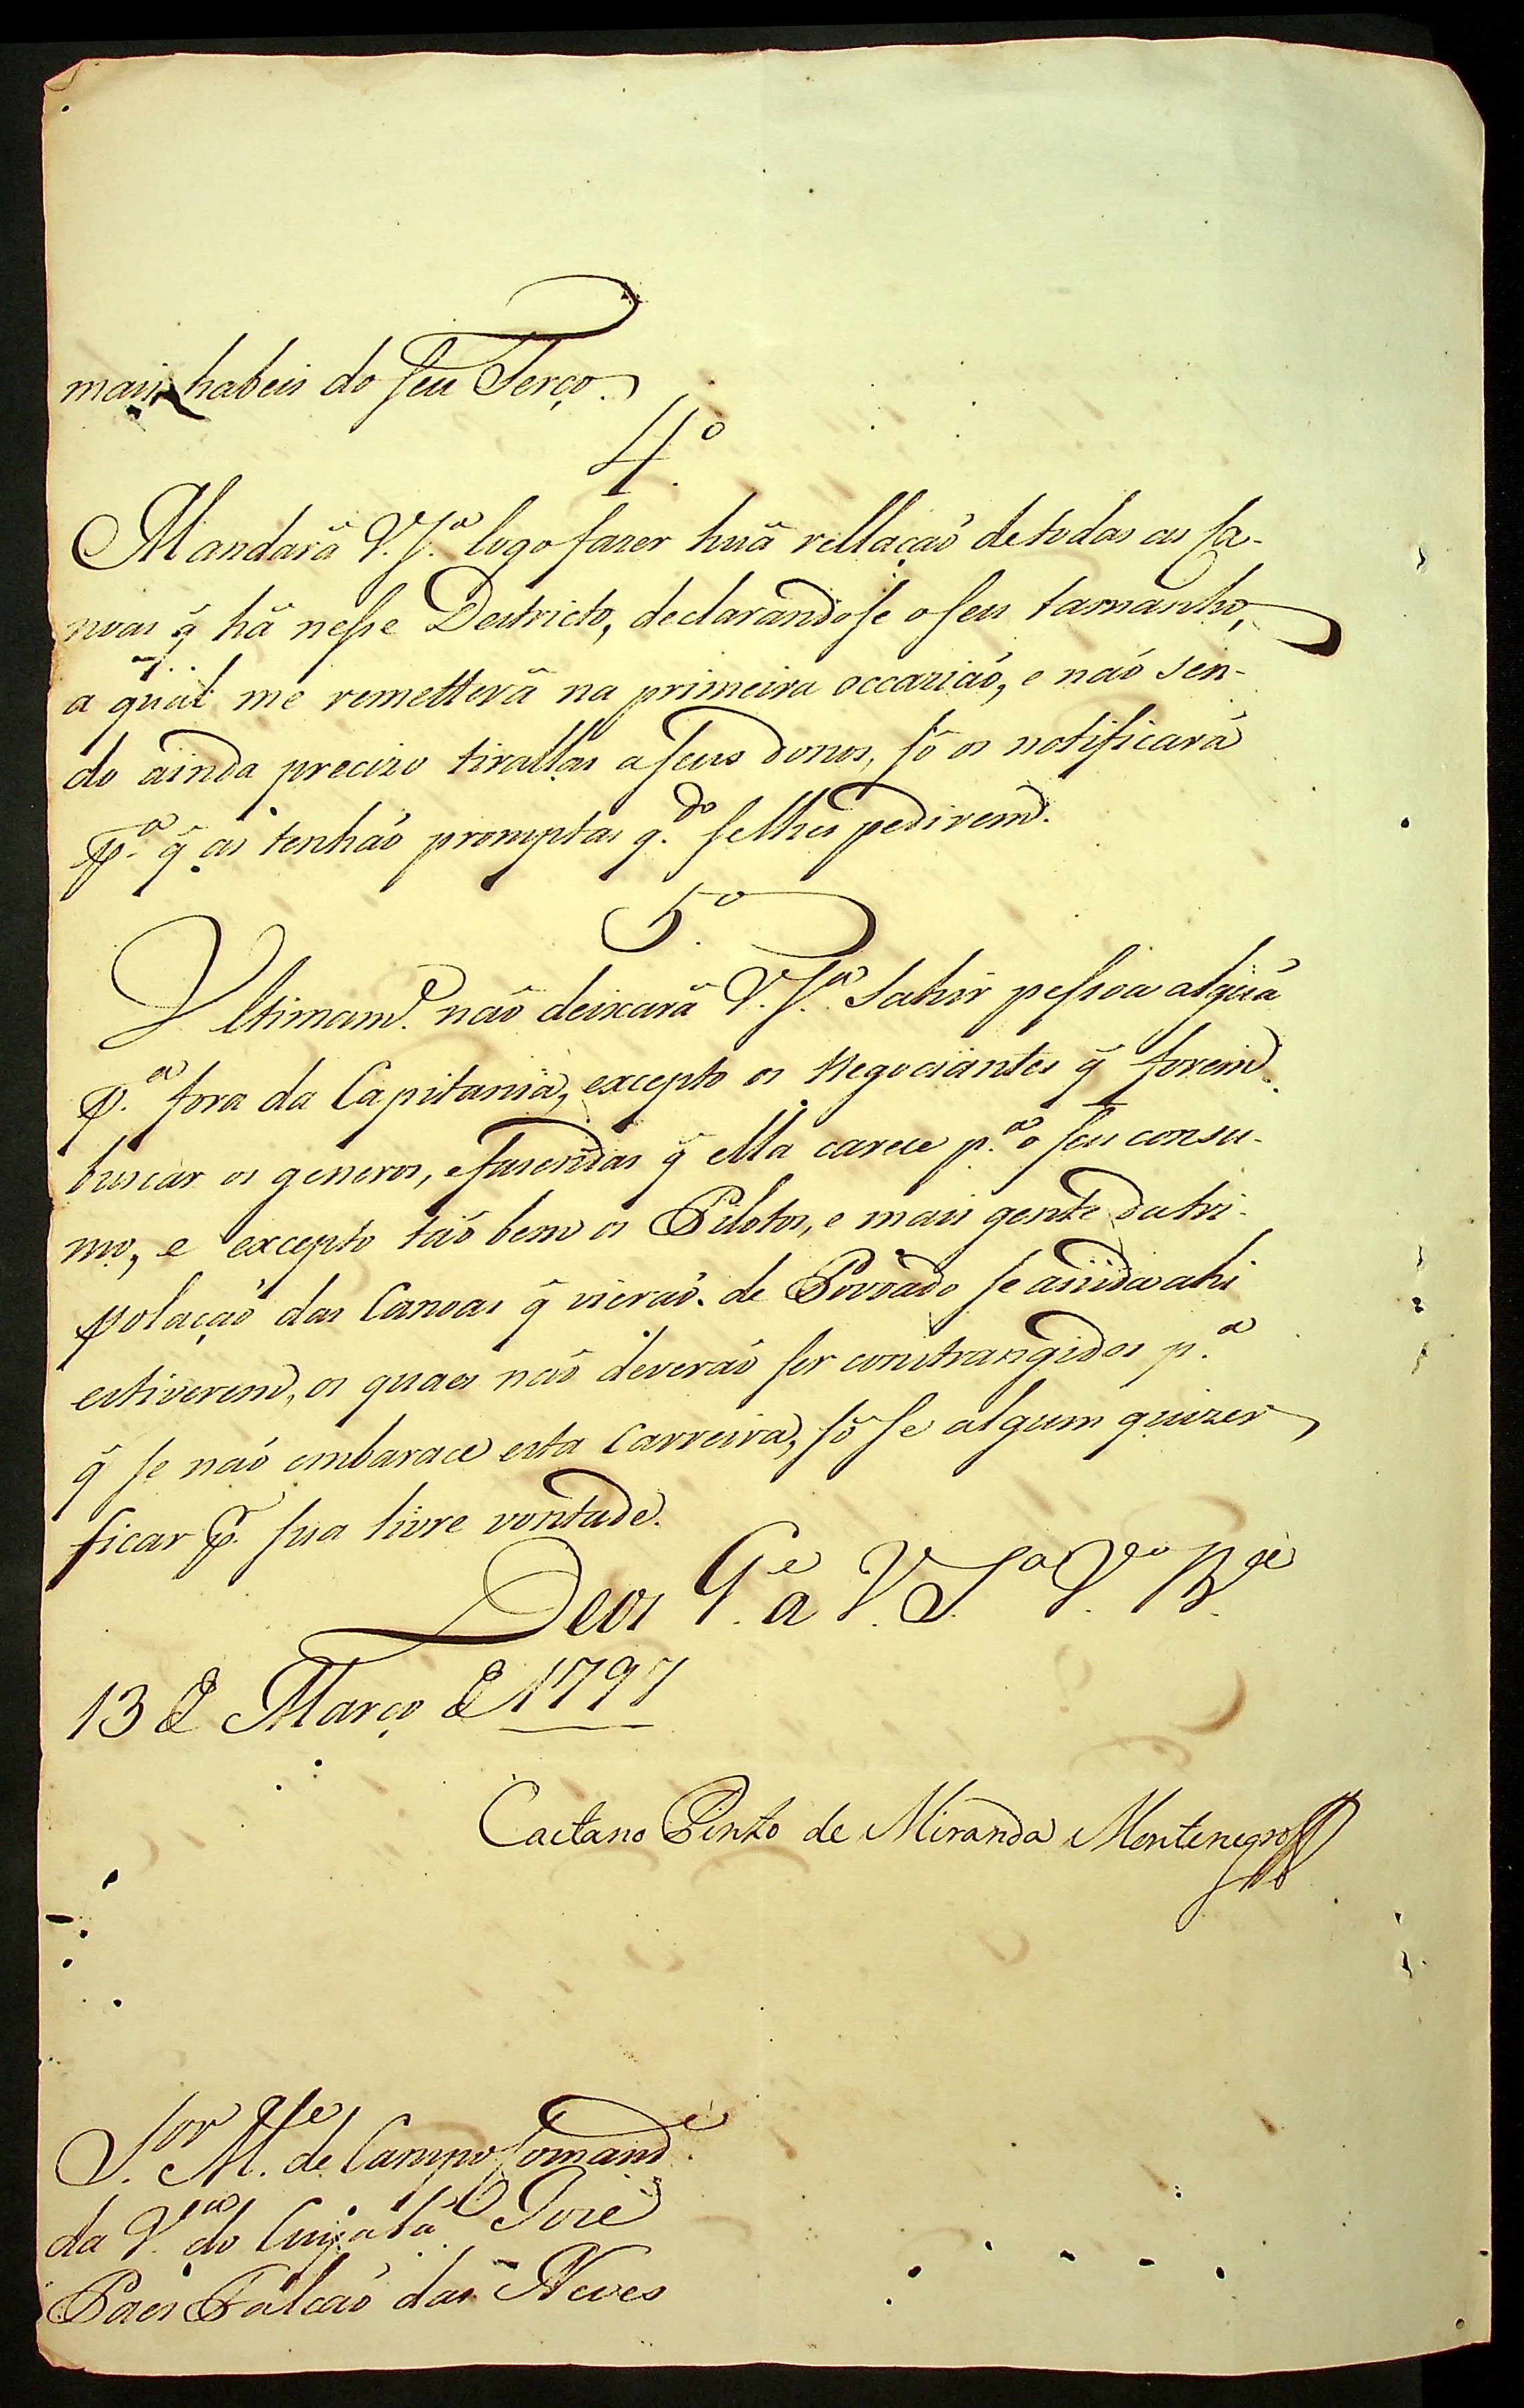 mais habeis do seu Terço.
4.º
Mandarã V. S.ª logo fazer huã rellação de todas as Ca-
noas q̃ hã nesse Destricto, declarandose o seu tamanho,
a qual me remetterã na primeira occazião, e não sen-
do ainda precizo tirallas a seus donos, sõ os notificarã
p.ª q̃ as tenhão promptas q.do selhes pedirem.
5.º
Ultimam.e não deixarã V. S.ª Sahir pessoa algũa
p.ª fora da Capitania, excepto os Negociantes q̃ forem
buscar os generos, e fasendas q̃ ella carece p.ª o seu consu-
mo, e excepto tão bem os Pilotos, e mais gente datri-
polação das Canoas q̃ vierão de Povoado se ainda ahi
estiverem, os quaes não deverão ser constrangidos p.ª
q̃ se não embarace esta Carreira, sõ se algum quizer
ficar p.r sua livre vontade.
Deos G.e a V. S.ª V.ª B.ª
13 de Março de 1797
Caetano Pinto de Miranda Montenegro
S.or M.e de Campo Comand.e
da V.ª do Cuyabá José
Paes Falcão das Neves